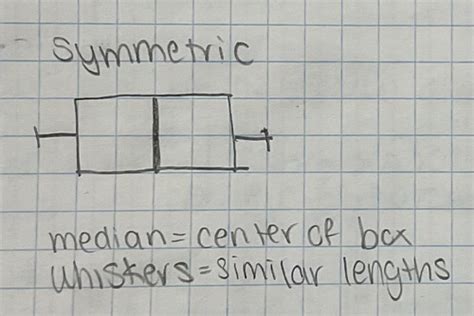 symmetric
median = center of box
whiskers = similar lengths